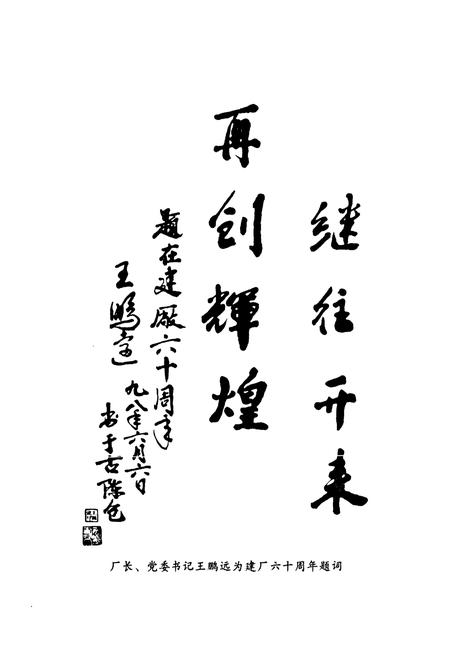 继往开来
再创輝煌
题在建厰六十周年
王鹏远
九八年六月六日
书于古陈仓
厂长、党委书记王鹏远为建厂六十周年题词